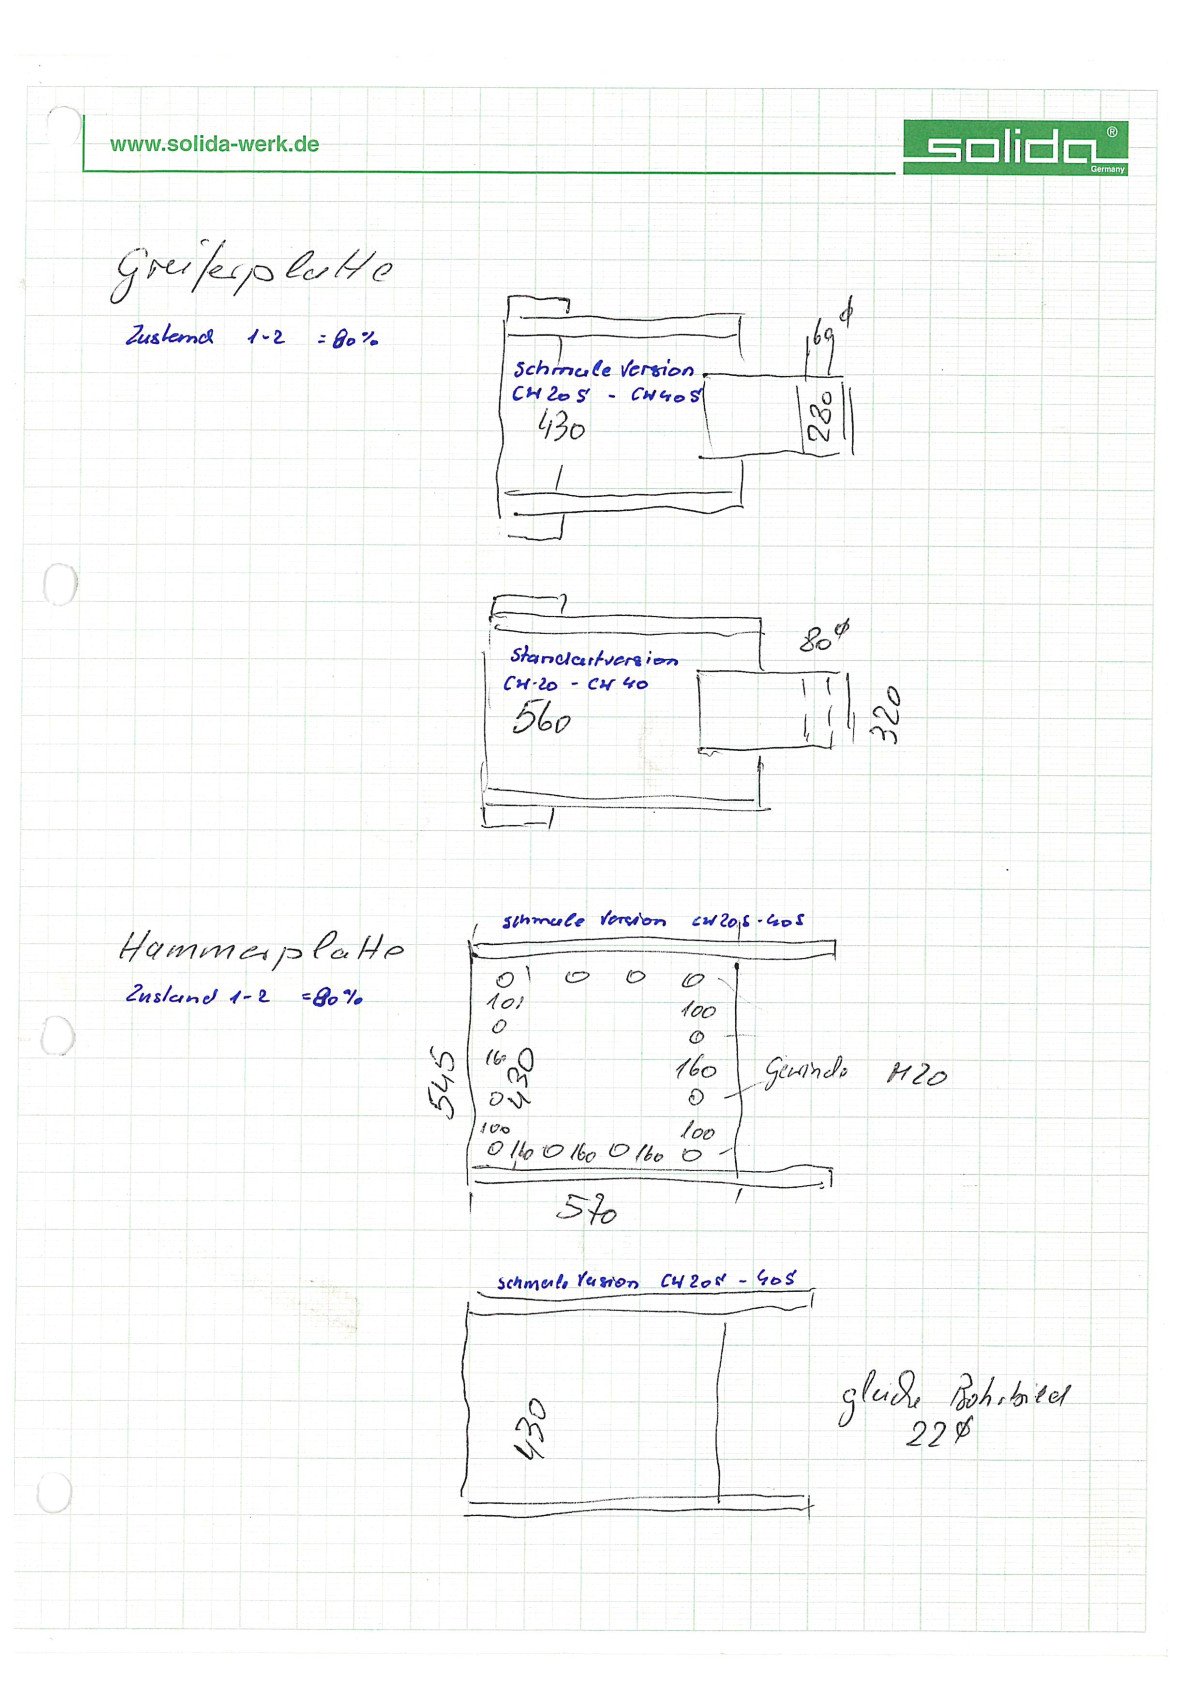 www.solida-werk.de
solida ®
Germany
Greiferplatte
Zustand 1-2 = 80%
69 ∅
Schmale Version
CH 20 S - CH 40 S
430
280
80 ∅
Standartversion
CH-20 - CH 40
560
320
Schmale Version CH 20 S - 40 S
Hammerplatte
Zustand 1-2 = 80%
100
100
545
160
430
160
Gewinde M20
100
100
160 160 160
570
Schmale Version CH 20 S - 40 S
430
gleiche Bohrbild
22 ∅